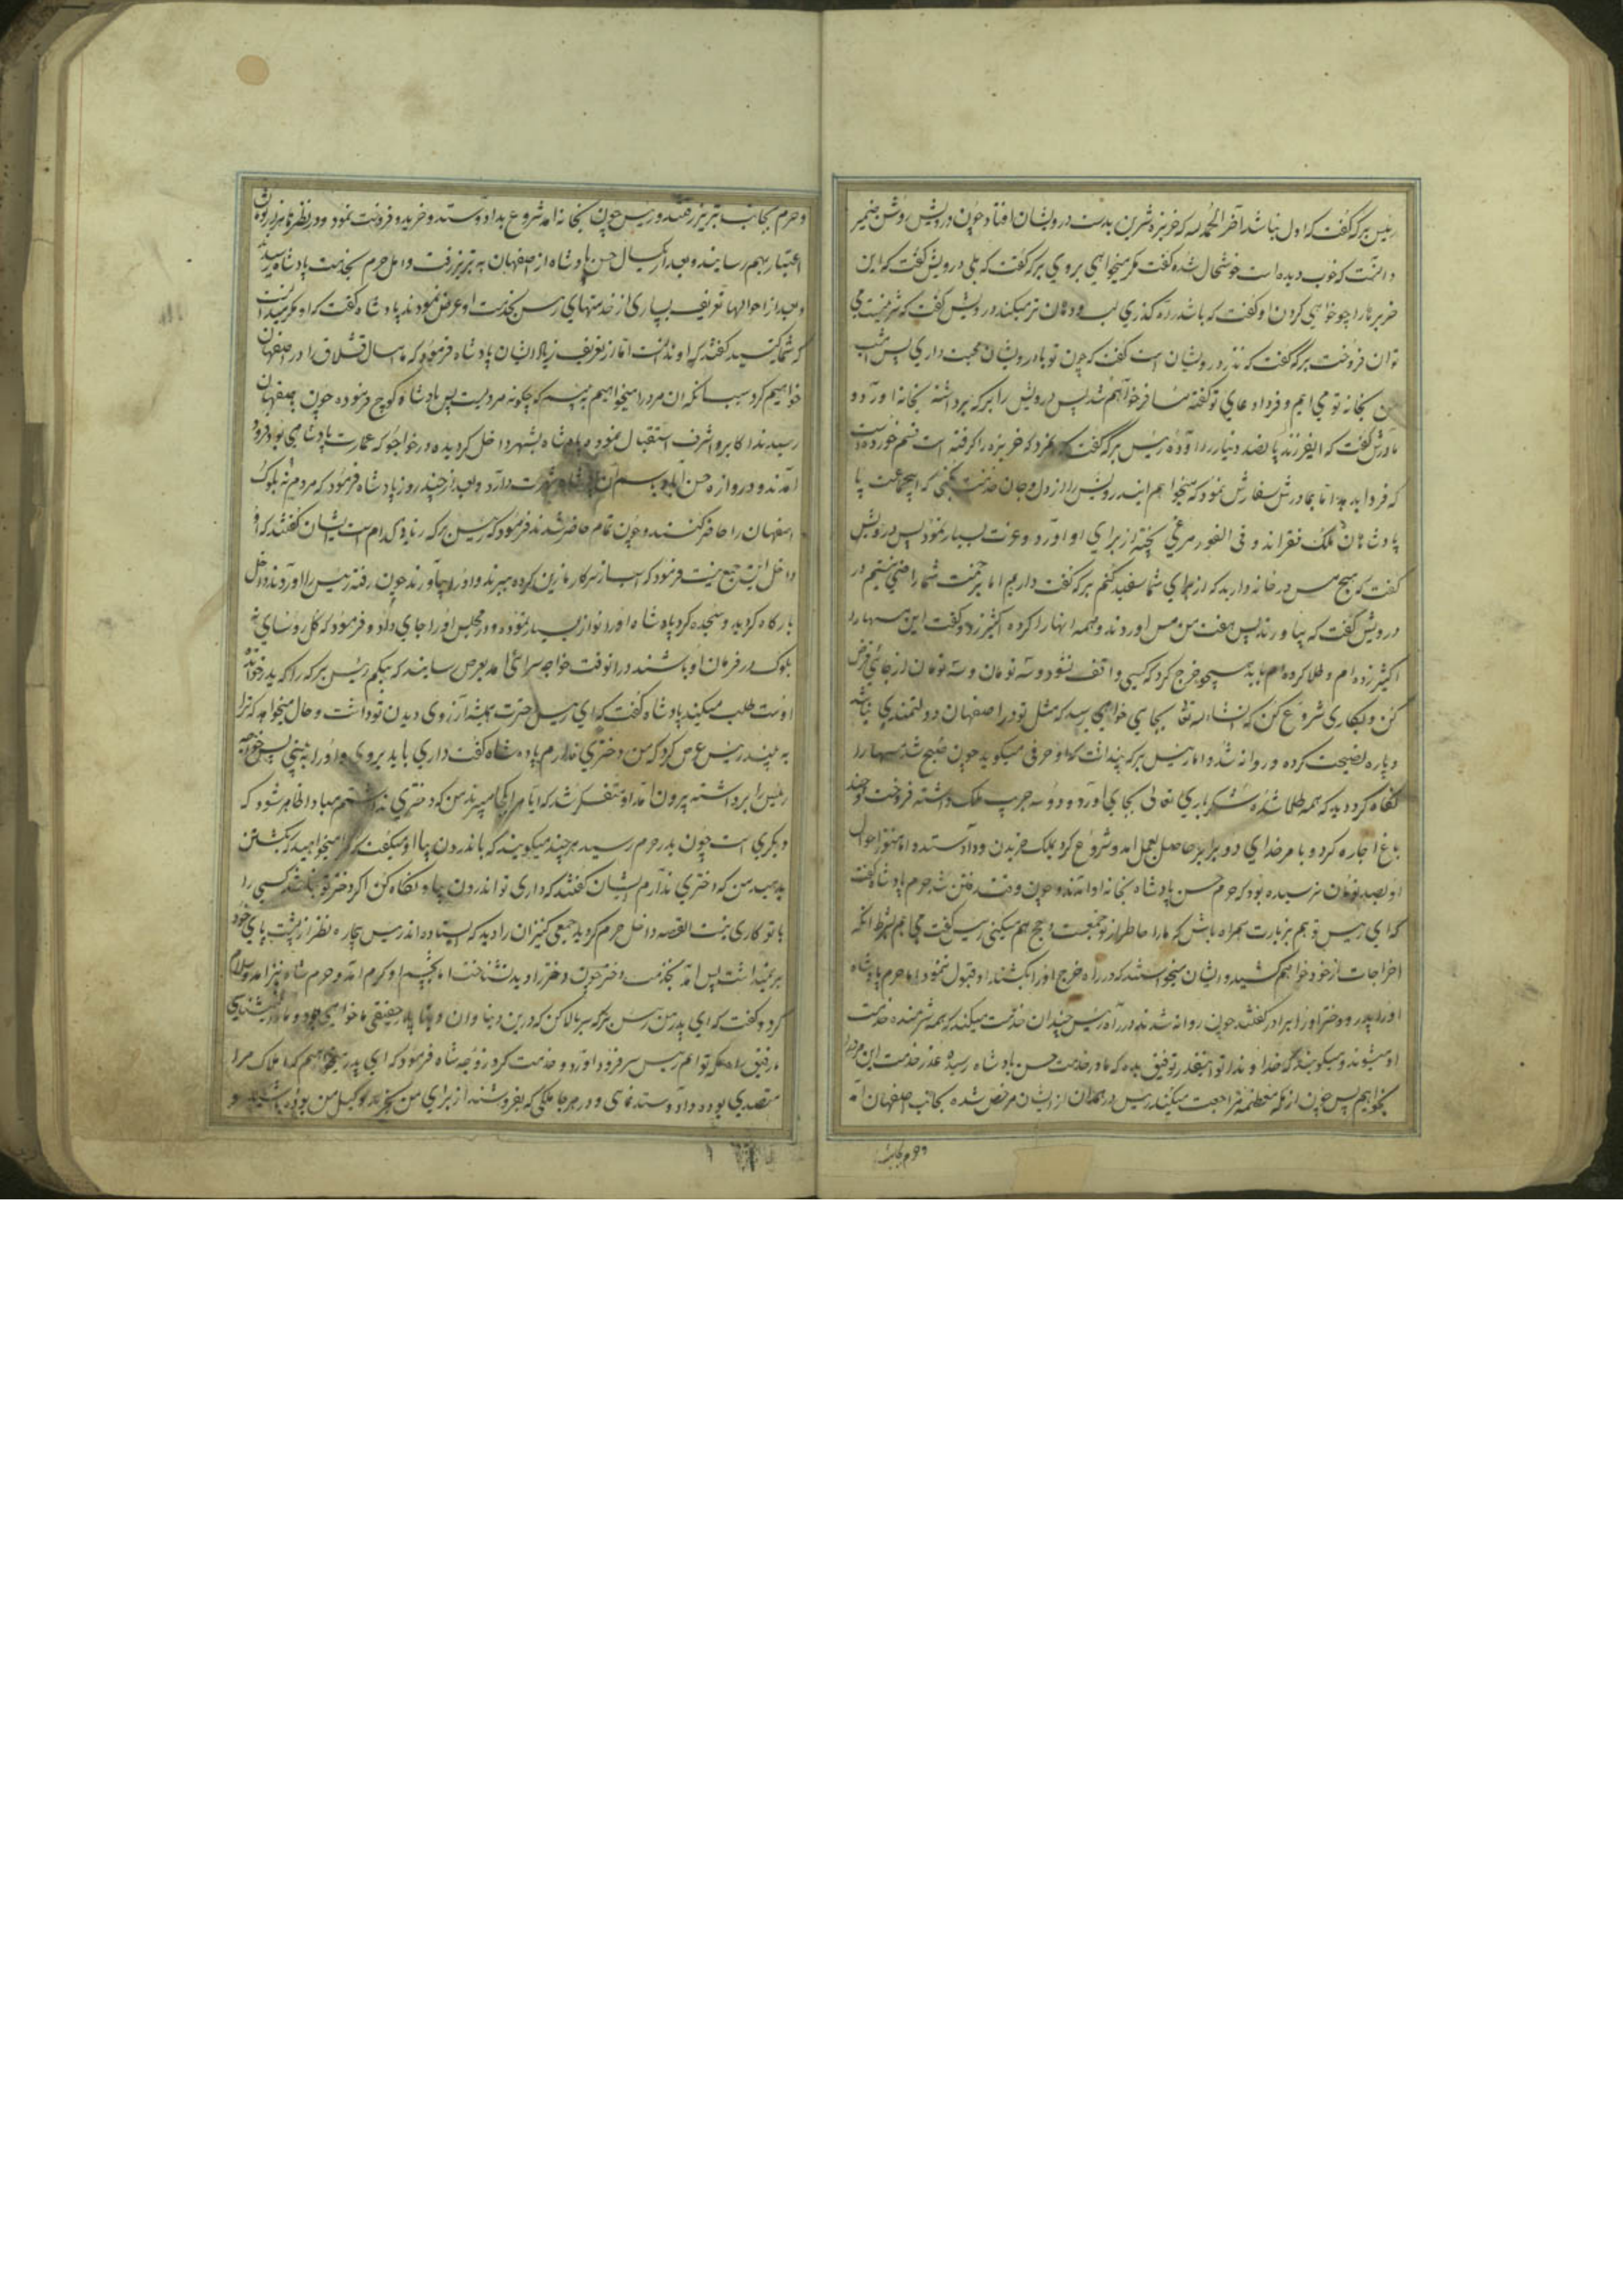 رئیس برکه گفت که اول نباشد آخر الحمد لله که خربزه شیرین بدست درویشان افتاد چون درویش روشن ضمیر
دانست که خوب دیده است خوشحال شده گفت مکر میخواهی بروی برکه گفت که بلی درویش گفت که این
خربزها را چو خواهی کرد او گفت که باشد در ره گذری لب و دهان تر میکند درویش گفت که شرط نیست می
توان فروخت برکه گفت که نذر درویشان است گفت که چون تو با درویشان محبت داری پس امشب
من بخانه تو می ایم و فردا دعای تو گفته مسافر خواهم شد پس درویش را برکه برداشته بخانه اورد و
مادرش گفت که ایفرزند پانصد دینار را آورده رئیس برکه گفت که مرد که خربزه را کرفته است قسم خورده است
که فردا بدهد اما بمادرش سفارش نمود که میخواهم ایندرویش را از دل و جان خدمت بکنی که اینجماعت پا
پادشاهان ملک فقراند و فی الفور مرغی پخته از برای او اورد و عزت بسیار نمود پس درویش
گفت که هیچ مس در خانه دارید که از برای شما سفید کنم برکه گفت داریم اما بزحمت شما راضی نیستم
درویش گفت که بیاورند پس هفت من مس اوردند و همه انها را کرده اکثیر زد و گفت این مسها را
اکثیر زده ام و طلا کرده ام باید خرج کرد که کسی واقف نشود و سه تومان و سه تومان از جائی قرض
کن و بکاری شروع کن که انشاء الله تعا بجایی خواهی رسید که مثل تو در اصفهان دولتمندی نباشد
و پاره نصیحت کرده و روانه شد و اما رئیس برکه پنداشت که او حرفی میکوید چون صبح شد مسها را
نگاه کرد دید که همه طلا شده شکر باری تعالی بجای اورد و دو سه جریب ملک داشته فروخت و چند
باغ اجاره کرد و با مر خدای دو برابر حاصل بعمل امد و شروع کرد بملک خریدن و داد ستد و اما هنوز احوال
او بصد تومان نرسیده بود که حرم حسن پادشاه بخانه او امدند و چون وقت رفتن شد حرم پادشاه گفت
که ای رئیس تو هم بزیارت همراه باش که ما را خاطر از تو جمعست و حج هم میکنی رئیس گفت می ایم بشرط انکه
اخراجات از خود خواهم کشید و ایشان میخواستند که در راه خرج او را بکشند او قبول ننمود اما حرم پادشاه
او را پدر و دختر او را برادر گفتند چون روانه شدند در راه رئیس چندان خدمت میکند که همه شرمنده خدمت
او میشوند و میکویند که خدا وندا تو اینقدر توفیق بده که ما در خدمت حسن پادشاه رسیده عذر خدمت این مرد را
بخواهیم پس چون از مکه معظمه مراجعت میکنند رئیس در همدان از ایشان مرخص شده بجانب اصفهان آمد
و حرم بجانب
و حرم بجانب تبریز رفتند و رئیس چون بخانه امد شروع بداد و ستد و خرید و فروخت نمود و در نظرها
اعتبار بهم رسانید و بعد از یکسال حسن پادشاه از اصفهان به تبریز رفت و اهل حرم بخدمت پادشاه رسیدند
و بعد از احوالها تعریف بسیاری از خدمتهای رئیس بخدمت او عرض نمودند پادشاه گفت که او مکر میدانست
که شما کیستید گفتند که او ندانست اما از تعریف زیاد ایشان پادشاه فرمود که ما امسال قشلاق را در اصفهان
خواهیم کرد سبب انکه ان مرد را میخواهیم به بینیم که چگونه مردیست پس پادشاه کوچ فرموده چون باصفهان
رسیدند اکابر و اشرف استقبال نموده و پادشاه بشهر داخل کردیده در خواجو که عمارت پادشاهی بود فرود
آمدند و دروازه حسن اباد باسم آن پادشاه شهرت دارد و بعد از چند روز پادشاه فرمود که مردم نه بلوک
اصفهان را حاضر کنند و چون تمام حاضر شدند فرمود که رئیس برکه زیاده کدام است ایشان گفتند که او
داخل این جمع نیست فرمود که اسب از سرکار ما زین کرده ببرند و او را بیاورند چون رفته رئیس را اوردند داخل
بارگاه کردید و سجده کرد پادشاه او را نوازش بسیار نموده و در مجلس او را جای داد و فرمود که کل روسای نه
بلوک در فرمان او باشند در انوقت خواجه سرائی امد بعرض رسانید که بیکم رئیس برکه را که پدر خوانده
اوست طلب میکند پادشاه گفت که ای رئیس دخترت همیشه آرزوی دیدن تو داشت و حال میخواهد که ترا
به بیند رئیس عرض کرد که من دختری ندارم پادشاه گفت داری باید بروی و او را به بینی پس خواجه
رئیس را برداشته بیرون امد او متفکر شد که ایا مرا بکجا میبرند من که دختری نداشتم مبادا ظاهر شود که
دیگری است چون بدر حرم رسید هر چند میکویند که باندرون بیا او میکفت که مرا میخواهید که بکشتن
بدهید من که دختری ندارم ایشان گفتند که داری تو اندرون بیا و نگاه کن اگر دختر تو نباشد کسی را
با تو کاری نیست القصه داخل حرم کردید جمعی کنیزان را دید که ایستاده اند رئیس بیچاره نظر از پشت پای خود
بر نمیداشت پس امد بخدمت دختر چون دختر را دید نشناخت اما بیکم او کرم امد و حرم شاه نیز امد و سلام
کرد و گفت که ای پدر من رئیس برکه سر بالا کن که در این دنیا و ان دنیا پدر حقیقی ما خواهی بود و ما
رفیق راه مکه تو ایم رئیس سر فرود اورد و خدمت کرد زوجه شاه فرمود که ای پدر میخواهم که املاک مرا
متصدی بوده داد و ستد نمائی و در هر جا ملکی که بفروشند از برای من بخرید و وکیل من بوده باشید و